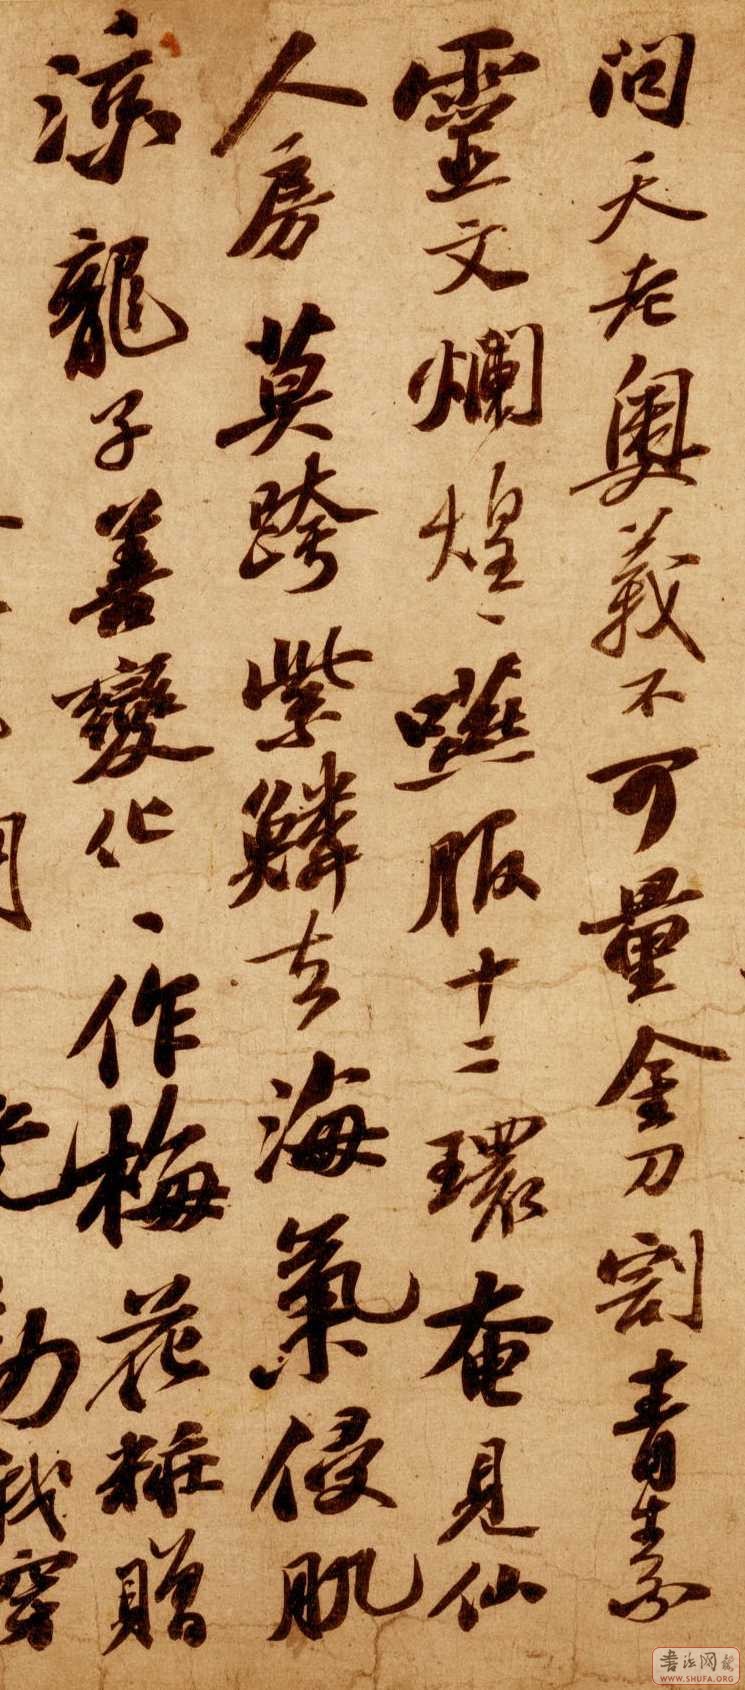 问天老奥義不可量金刀割青素
靈文爛煌〻嚥服十二環奄見仙
人房莫跨紫鱗去海氣侵肌
涼龍子善變化〻作梅花粧贈
我穿
書法网
WWW.SHUFA.ORG